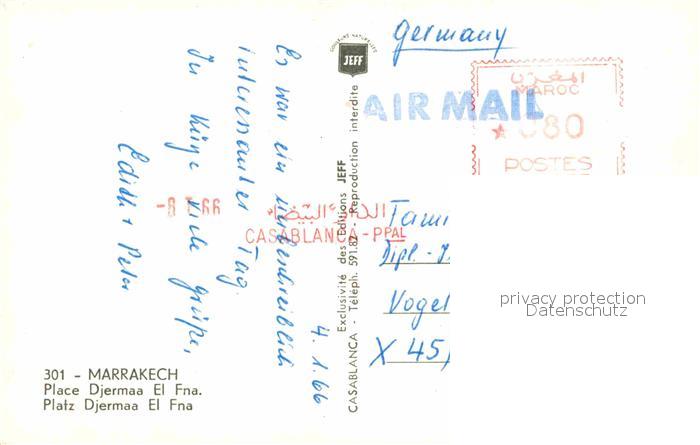 4.1.66
Es war ein unbeschreiblich
interessanter Tag.
In Kürze viele Grüße,
Edith + Peter
301 - MARRAKECH
Place Djermaa El Fna.
Platz Djermaa El Fna
COULEURS NATURELLES
JEFF
Exclusivité des Editions JEFF
CASABLANCA - Téléph. 591.82 - Reproduction interdite
Germany
AIR MAIL
المغرب
MAROC
★ 080
POSTES
-8 66
الدار البيضاء
CASABLANCA-PPAL
Fami
Dipl.-J.
Vogel
X 45)
privacy protection
Datenschutz